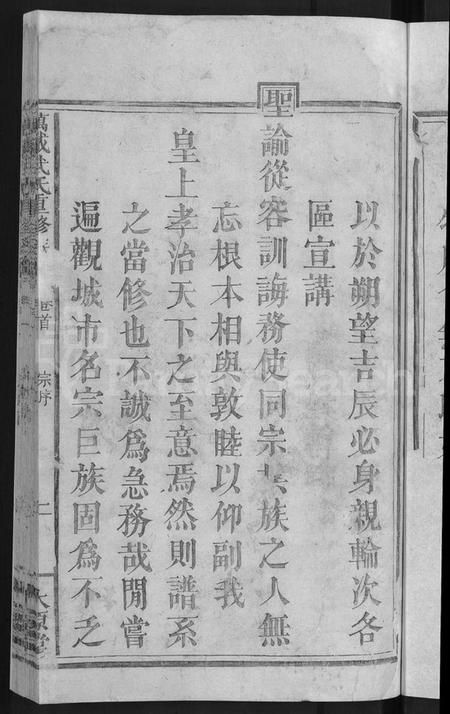 以於朔望吉辰必身親輪次各
區宣講
聖諭從容訓誨務使同宗共族之人無
忘根本相與敦睦以仰副我
皇上孝治天下之至意焉然則譜系
之當修也不誠為急務哉閒嘗
遍觀城市名宗巨族固為不乏
萬載武氏重修
卷首
宗序
二
太原堂